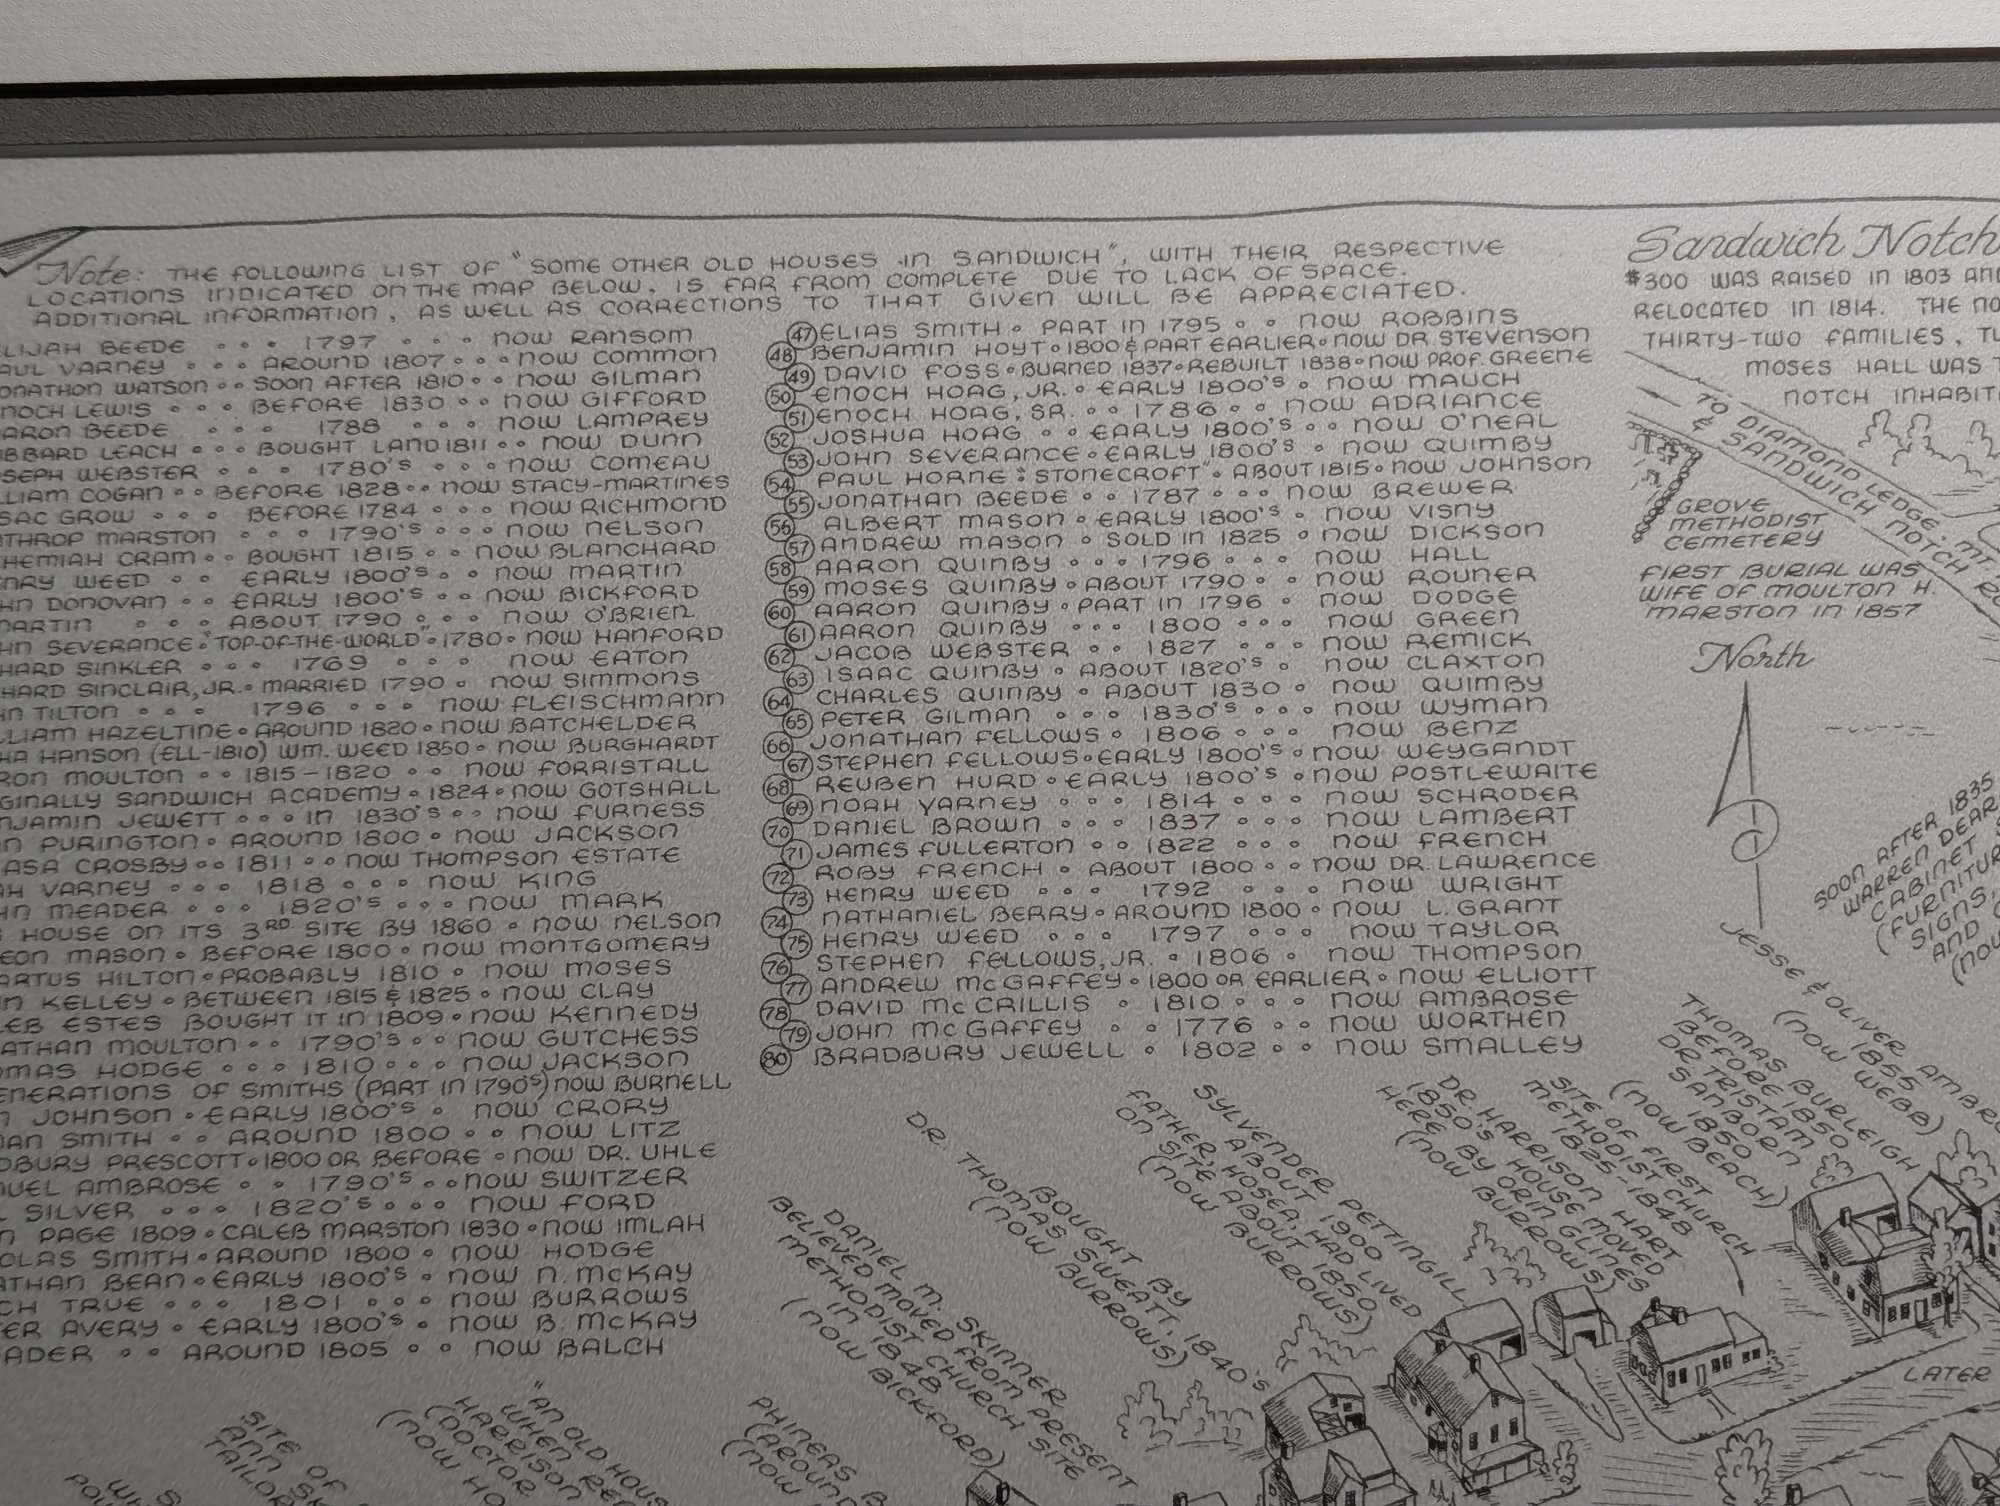 Note: THE FOLLOWING LIST OF "SOME OTHER OLD HOUSES IN SANDWICH", WITH THEIR RESPECTIVE
LOCATIONS INDICATED ON THE MAP BELOW, IS FAR FROM COMPLETE DUE TO LACK OF SPACE.
ADDITIONAL INFORMATION, AS WELL AS CORRECTIONS TO THAT GIVEN WILL BE APPRECIATED.
LIJAH BEEDE • • • 1797 • • • NOW RANSOM
AUL VARNEY • • • AROUND 1807 • • • NOW COMMON
ONATHON WATSON • • SOON AFTER 1810 • • NOW GILMAN
NOCH LEWIS • • • BEFORE 1830 • • NOW GIFFORD
ARON BEEDE • • • 1788 • • • NOW LAMPREY
BBARD LEACH • • • BOUGHT LAND 1811 • • NOW DUNN
OSEPH WEBSTER • • • 1780'S • • • NOW COMEAU
LLIAM COGAN • • BEFORE 1828 • • NOW STACY-MARTINES
SAC GROW • • • BEFORE 1784 • • • NOW RICHMOND
NTHROP MARSTON • • • 1790'S • • • NOW NELSON
HEMIAH CRAM • • BOUGHT 1815 • • NOW BLANCHARD
NRY WEED • • EARLY 1800'S • • NOW MARTIN
HN DONOVAN • • EARLY 1800'S • • NOW BICKFORD
MARTIN • • • ABOUT 1790 • • NOW O'BRIEN
HN SEVERANCE • "TOP-OF-THE-WORLD" • 1780 • NOW HANFORD
HARD SINKLER • • • 1769 • • • NOW EATON
HARD SINCLAIR, JR. • MARRIED 1790 • NOW SIMMONS
HN TILTON • • • 1796 • • • NOW FLEISCHMANN
LLIAM HAZELTINE • AROUND 1820 • NOW BATCHELDER
HA HANSON (ELL-1810) WM. WEED 1850 • NOW BURGHARDT
RON MOULTON • • 1815-1820 • • NOW FORRISTALL
GINALLY SANDWICH ACADEMY • 1824 • NOW GOTSHALL
NJAMIN JEWETT • • • IN 1830'S • • NOW FURNESS
N PURINGTON • AROUND 1800 • NOW JACKSON
ASA CROSBY • • 1811 • • NOW THOMPSON ESTATE
AH VARNEY • • • 1818 • • • NOW KING
HN MEADER • • • 1820'S • • • NOW MARK
HOUSE ON ITS 3RD. SITE BY 1860 • NOW NELSON
EON MASON • BEFORE 1800 • NOW MONTGOMERY
ARTUS HILTON • PROBABLY 1810 • NOW MOSES
N KELLEY • BETWEEN 1815 & 1825 • NOW CLAY
LEB ESTES BOUGHT IT IN 1809 • NOW KENNEDY
NATHAN MOULTON • • 1790'S • • NOW GUTCHESS
OMAS HODGE • • • 1810 • • • NOW JACKSON
ENERATIONS OF SMITHS (PART IN 1790'S) NOW BURNELL
N JOHNSON • EARLY 1800'S • NOW CRORY
MAN SMITH • • AROUND 1800 • • NOW LITZ
DBURY PRESCOTT • 1800 OR BEFORE • NOW DR. UHLE
UEL AMBROSE • • 1790'S • • NOW SWITZER
SILVER • • • 1820'S • • • NOW FORD
N PAGE 1809 • CALEB MARSTON 1830 • NOW IMLAH
OLAS SMITH • AROUND 1800 • NOW HODGE
ATHAN BEAN • EARLY 1800'S • NOW N. McKAY
CH TRUE • • • 1801 • • • NOW BURROWS
ER AVERY • EARLY 1800'S • NOW B. McKAY
ADER • • AROUND 1805 • • NOW BALCH
47 ELIAS SMITH • PART IN 1795 • • NOW ROBBINS
48 BENJAMIN HOYT • 1800 & PART EARLIER • NOW DR. STEVENSON
49 DAVID FOSS • BURNED 1837 • REBUILT 1838 • NOW PROF. GREENE
50 ENOCH HOAG, JR. • EARLY 1800'S • NOW MAUCH
51 ENOCH HOAG, SR. • • 1786 • • NOW ADRIANCE
52 JOSHUA HOAG • • EARLY 1800'S • • NOW O'NEAL
53 JOHN SEVERANCE • EARLY 1800'S • NOW QUIMBY
54 PAUL HORNE • "STONECROFT" • ABOUT 1815 • NOW JOHNSON
55 JONATHAN BEEDE • • 1787 • • • NOW BREWER
56 ALBERT MASON • EARLY 1800'S • NOW VISNY
57 ANDREW MASON • SOLD IN 1825 • NOW DICKSON
58 AARON QUINBY • • • 1796 • • NOW HALL
59 MOSES QUINBY • ABOUT 1790 • NOW ROUNER
60 AARON QUINBY • PART IN 1796 • NOW DODGE
61 AARON QUINBY • • • 1800 • • NOW GREEN
62 JACOB WEBSTER • • 1827 • • • NOW REMICK
63 ISAAC QUINBY • ABOUT 1820'S • NOW CLAXTON
64 CHARLES QUINBY • ABOUT 1830 • NOW QUIMBY
65 PETER GILMAN • • • 1830'S • • • NOW WYMAN
66 JONATHAN FELLOWS • 1806 • • • NOW BENZ
67 STEPHEN FELLOWS • EARLY 1800'S • NOW WEYGANDT
68 REUBEN HURD • EARLY 1800'S • NOW POSTLEWAITE
69 NOAH VARNEY • • • 1814 • • • NOW SCHRODER
70 DANIEL BROWN • • • 1837 • • • NOW LAMBERT
71 JAMES FULLERTON • • 1822 • • • NOW FRENCH
72 ROBY FRENCH • ABOUT 1800 • • NOW DR. LAWRENCE
73 HENRY WEED • • • 1792 • • • NOW WRIGHT
74 NATHANIEL BERRY • AROUND 1800 • NOW L. GRANT
75 HENRY WEED • • • 1797 • • • NOW TAYLOR
76 STEPHEN FELLOWS, JR. • 1806 • NOW THOMPSON
77 ANDREW McGAFFEY • 1800 OR EARLIER • NOW ELLIOTT
78 DAVID McCRILLIS • 1810 • • • NOW AMBROSE
79 JOHN McGAFFEY • • 1776 • • NOW WORTHEN
80 BRADBURY JEWELL • 1802 • • NOW SMALLEY
Sandwich Notch
$300 WAS RAISED IN 1803 AN
RELOCATED IN 1814. THE NO
THIRTY-TWO FAMILIES, TU
MOSES HALL WAS T
NOTCH INHABIT
TO DIAMOND LEDGE, MT.
& SANDWICH NOTCH R
GROVE
METHODIST
CEMETERY
FIRST BURIAL WAS
WIFE OF MOULTON H.
MARSTON IN 1857
North
SOON AFTER 1835
WARREN DEAR
CABINET
(FURNITUR
SIGNS,
AND
(NOW
JESSE & OLIVER AMBRO
1855
(NOW WEBB)
THOMAS BURLEIGH
BEFORE 1850
DR. TRISTAM
SANBORN
1850
(NOW BEACH)
SITE OF FIRST
METHODIST CHURCH
1825-1848
DR. HARRISON HART
1850'S HOUSE MOVED
HERE BY ORIN GLINES
(NOW BURROWS)
SYLVENDER PETTINGILL
ABOUT 1900
FATHER, HOSEA, HAD LIVED
ON SITE ABOUT 1850
(NOW BURROWS)
BOUGHT BY
DR. THOMAS SWEATT, 1840'S
(NOW BURROWS)
DANIEL M. SKINNER
BELIEVED MOVED FROM PRESENT
METHODIST CHURCH SITE
IN 1848
(NOW BICKFORD)
LATER
PHINEAS B
(AROUND
(NOW
"AN OLD HOUS
WHEN RE
HARRISON
(DOCTOR
(NOW HO
SITE OF
ANN SK
TAILOR